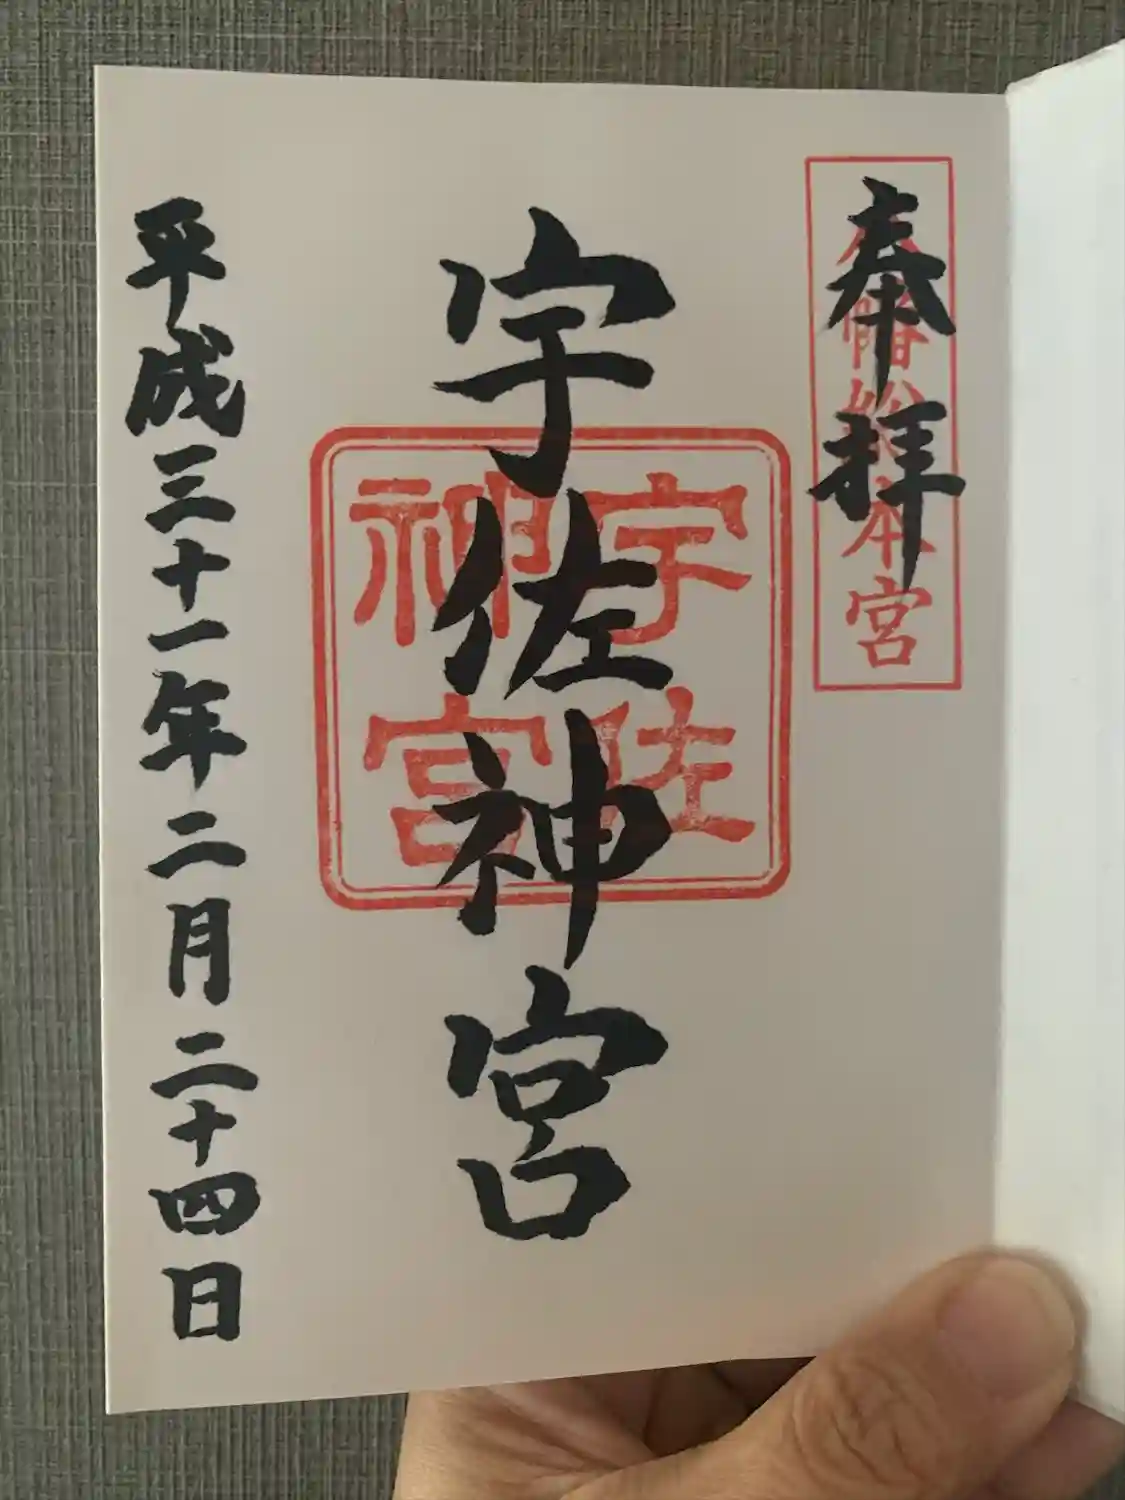 奉拝
八幡総本宮
宇佐神宮
宇佐
神宮
平成三十一年二月二十四日